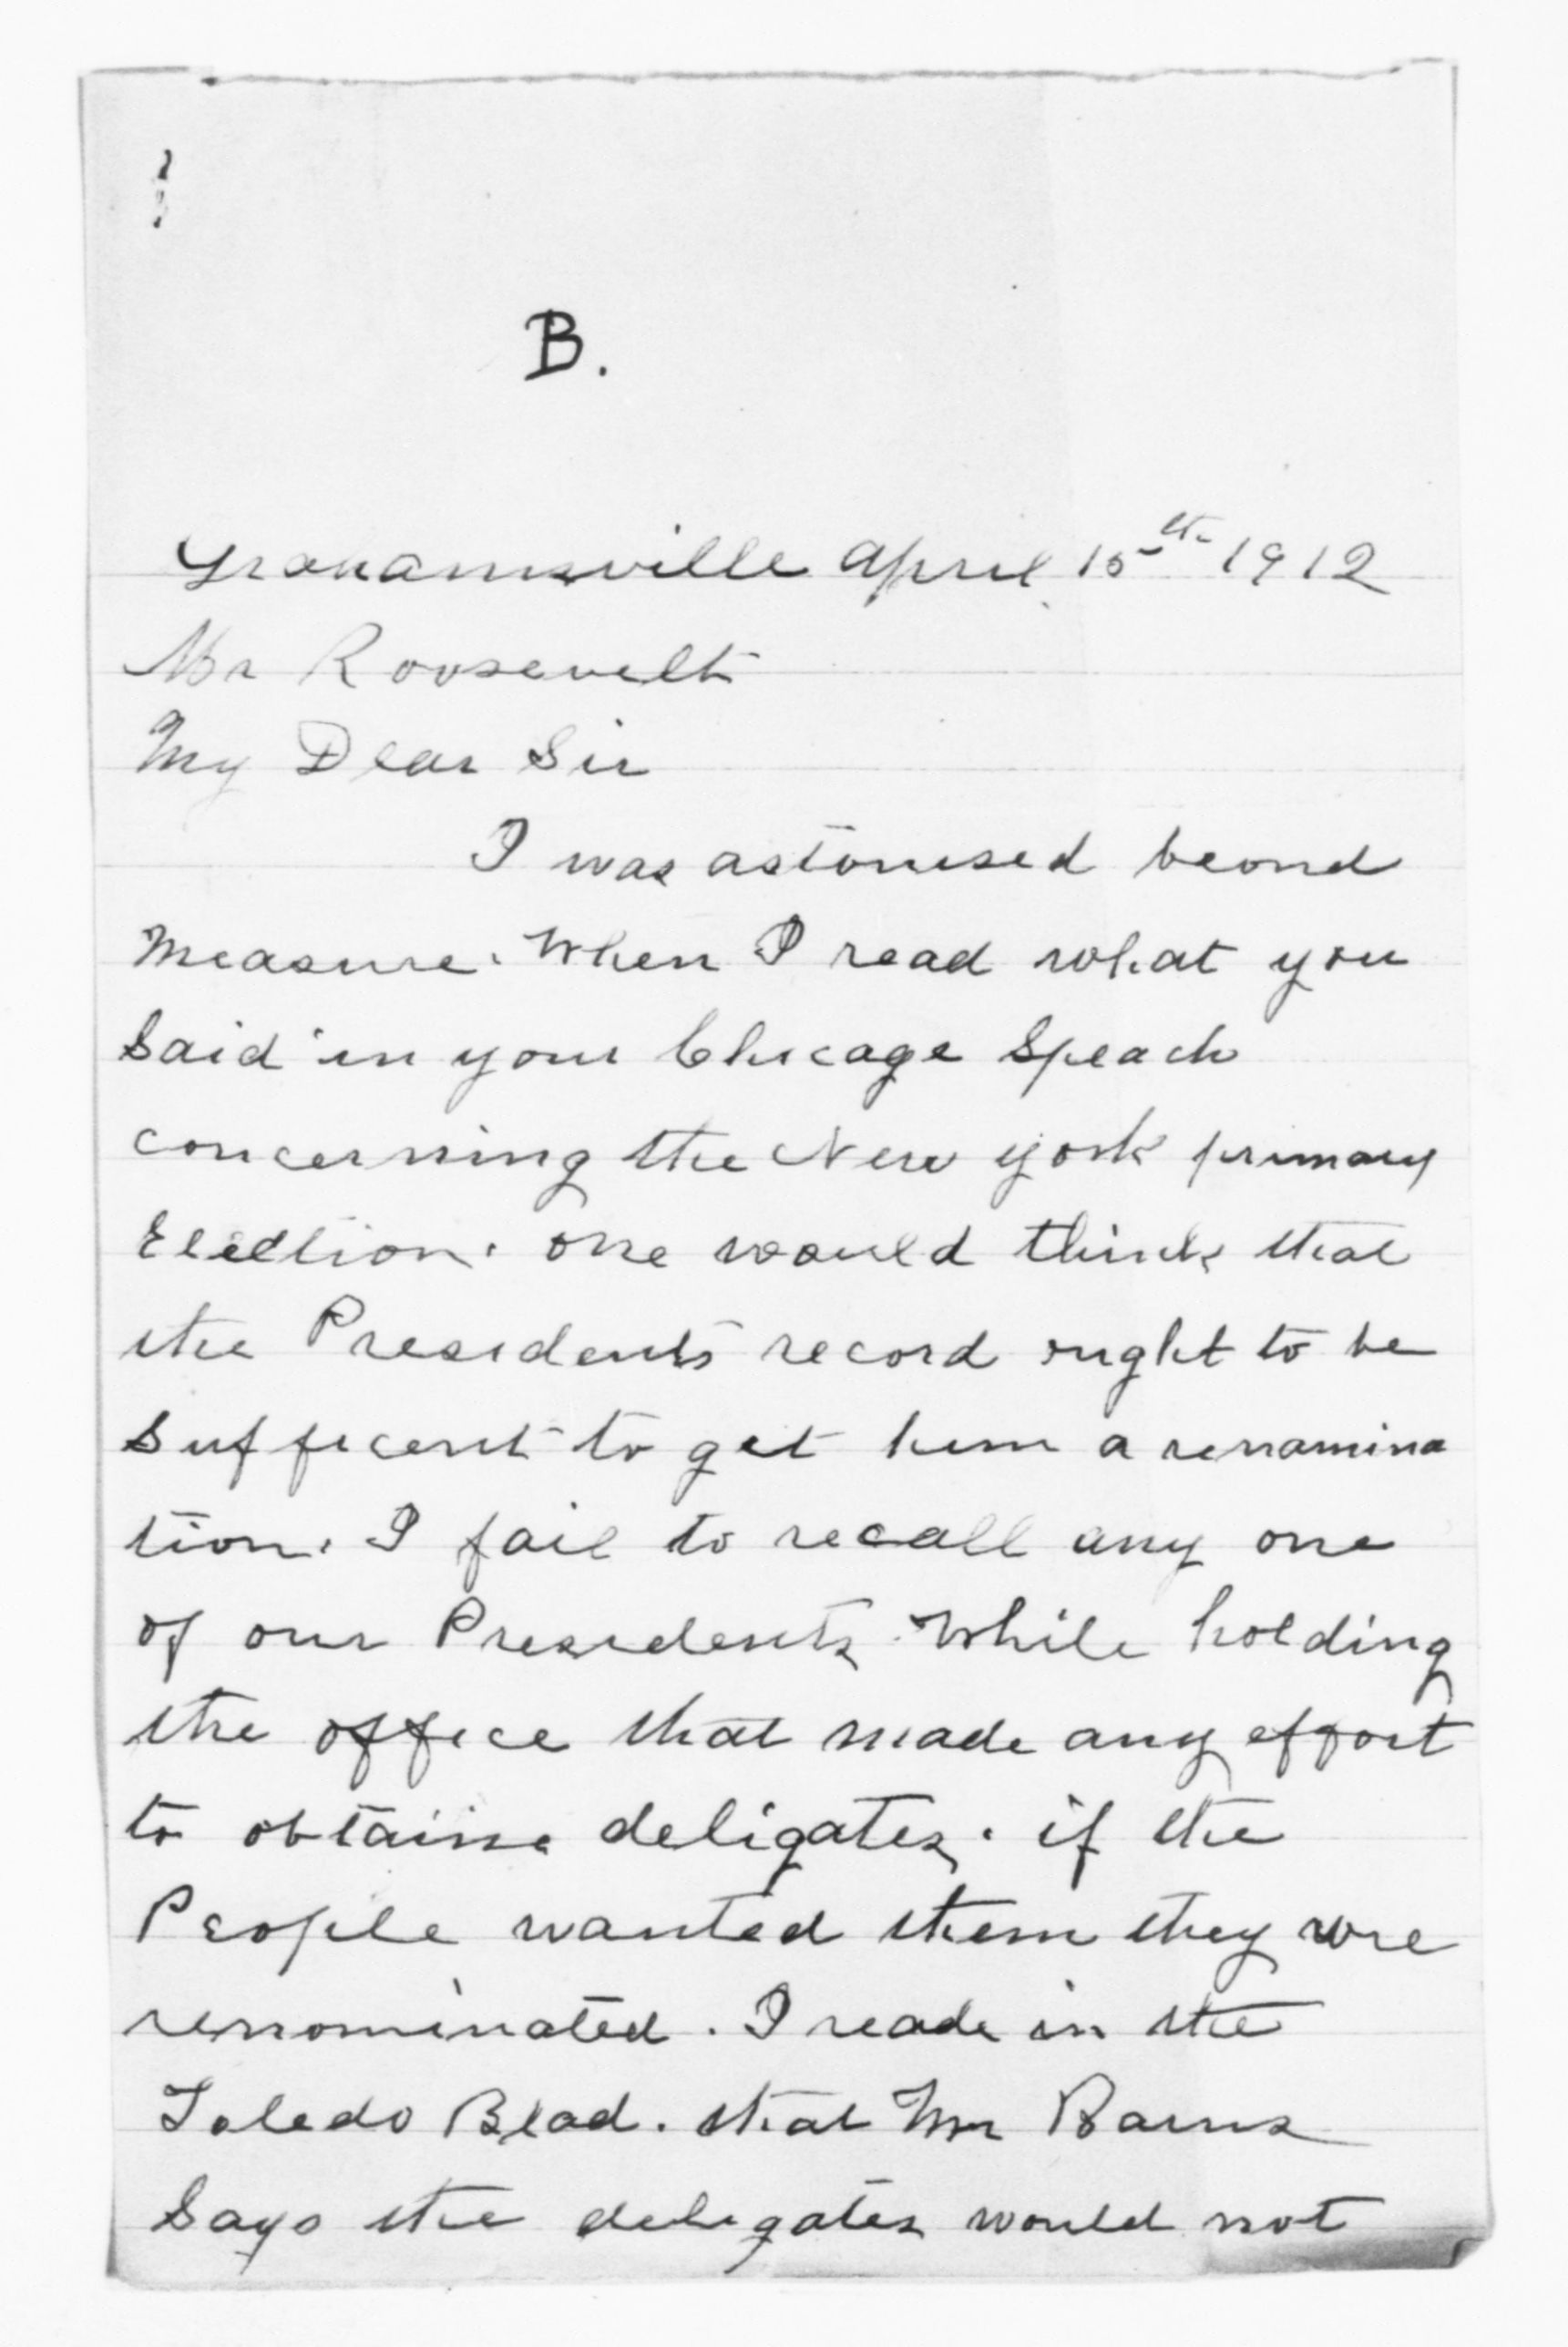 B.
Grahamsville April 15th 1912
Mr Roosevelt
My Dear Sir
I was astonised beond
Measure. When I read what you
Said in your Chicage Speach
concerning the New york primary
Election. one would think that
the Presidents record ought to be
Sufficent to get him a renamina
tion. I fail to recall any one
of our Presidents While holding
the office that made any effort
to obtaine deligates. if the
People wanted them they wre
renominated. I reade in the
Toledo Blad. that Mr Barns
Says the delegates would not